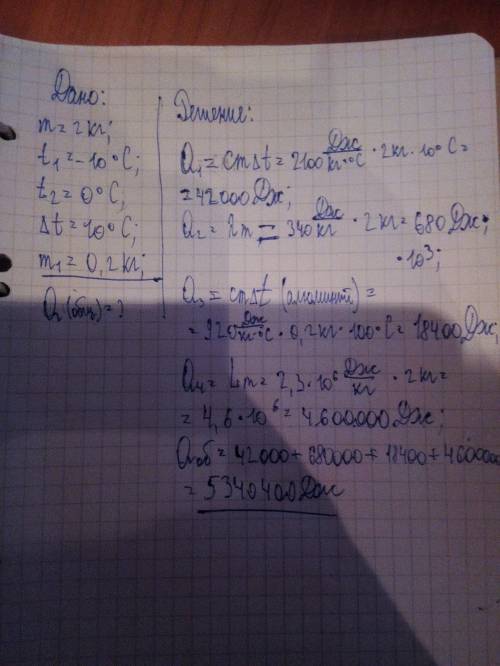 Дано:
m = 2 кг;
t₁ = -10°C;
t₂ = 0°C;
Δt = 10°C;
m₁ = 0,2 кг;
Q (общ) = ?
Решение:
Q₁ = cmΔt = 2100 Дж/кг·°C · 2 кг · 10°C =
= 42000 Дж;
Q₂ = λm = 340 Дж/кг · 2 кг = 680 Дж·
·10³;
Q₃ = cmΔt (алюминий) =
= 920 Дж/кг·°C · 0,2 кг · 100°C = 18400 Дж;
Q₄ = Lm = 2,3·10⁶ Дж/кг · 2 кг =
= 4,6·10⁶ = 4.600.000 Дж;
Qоб = 42000 + 680000 + 18400 + 4600000
= 5340400 Дж